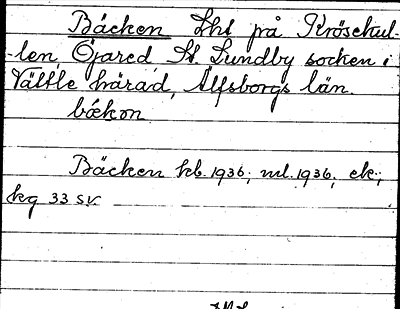 Bäcken Lht på Kröskul-
-len, Öjared St. Lundby socken i
Vättle härad, Älfsborgs län.
bäkon
Bäcken kb. 1936; ml. 1936; ek.;
kg 33 SV